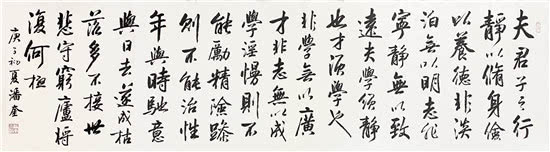 夫君子之行
靜以脩身儉
以養德非淡
泊無以明志非
寧靜無以致
遠夫學須靜
也才須學也
非學無以廣
才非志無以成
學淫慢則不
能勵精險躁
則不能治性
年與時馳意
與日去遂成枯
落多不接世
悲守窮廬將
復何極
庚子初夏潘